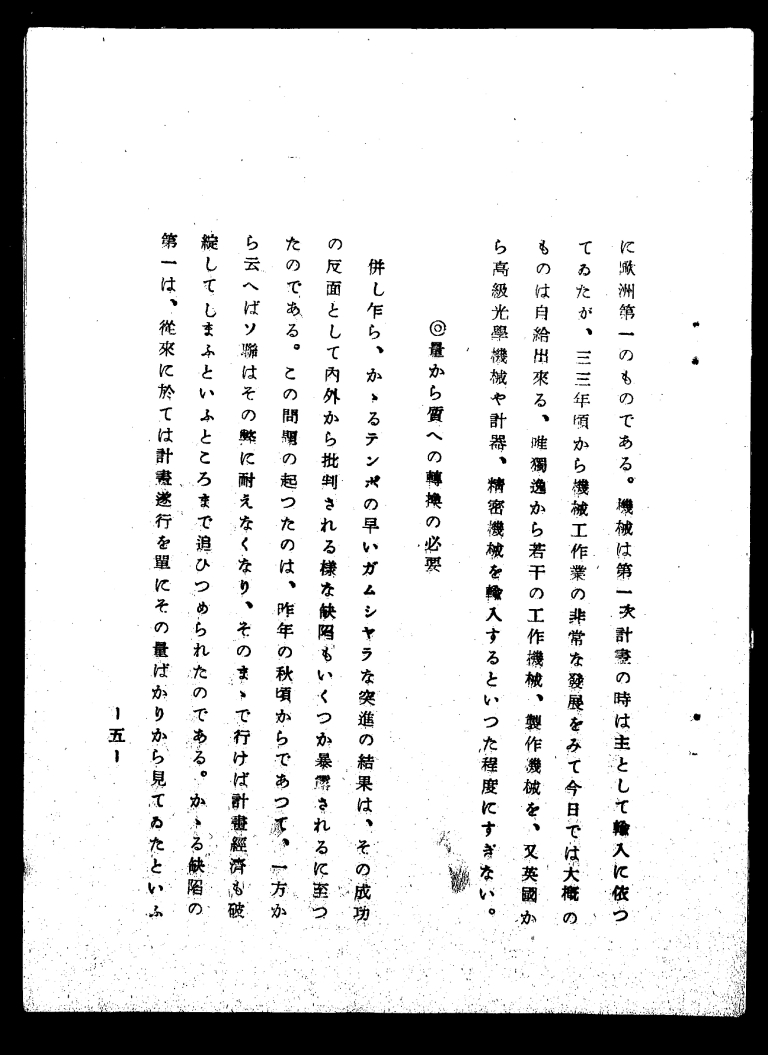 に歐洲第一のものである。機械は第一次計畫の時は主として輸入に依つ
てゐたが、三三年頃から機械工作業の非常な發展をみて今日では大概の
ものは自給出來る、唯獨逸から若干の工作機械、製作機械を、又英國か
ら高級光學機械や計器、精密機械を輸入するといつた程度にすぎない。
◎量から質への轉換の必要
併し乍ら、かゝるテンポの早いガムシヤラな突進の結果は、その成功
の反面として內外から批判される樣な缺陷もいくつか暴露されるに至つ
たのである。この問題の起つたのは、昨年の秋頃からであつて、一方か
ら云へばソ聯はその弊に耐えなくなり、そのまゝで行けば計畫經濟も破
綻してしまふといふところまで追ひつめられたのである。かゝる缺陷の
第一は、從來に於ては計畫遂行を單にその量ばかりから見てゐたといふ
ー五ー